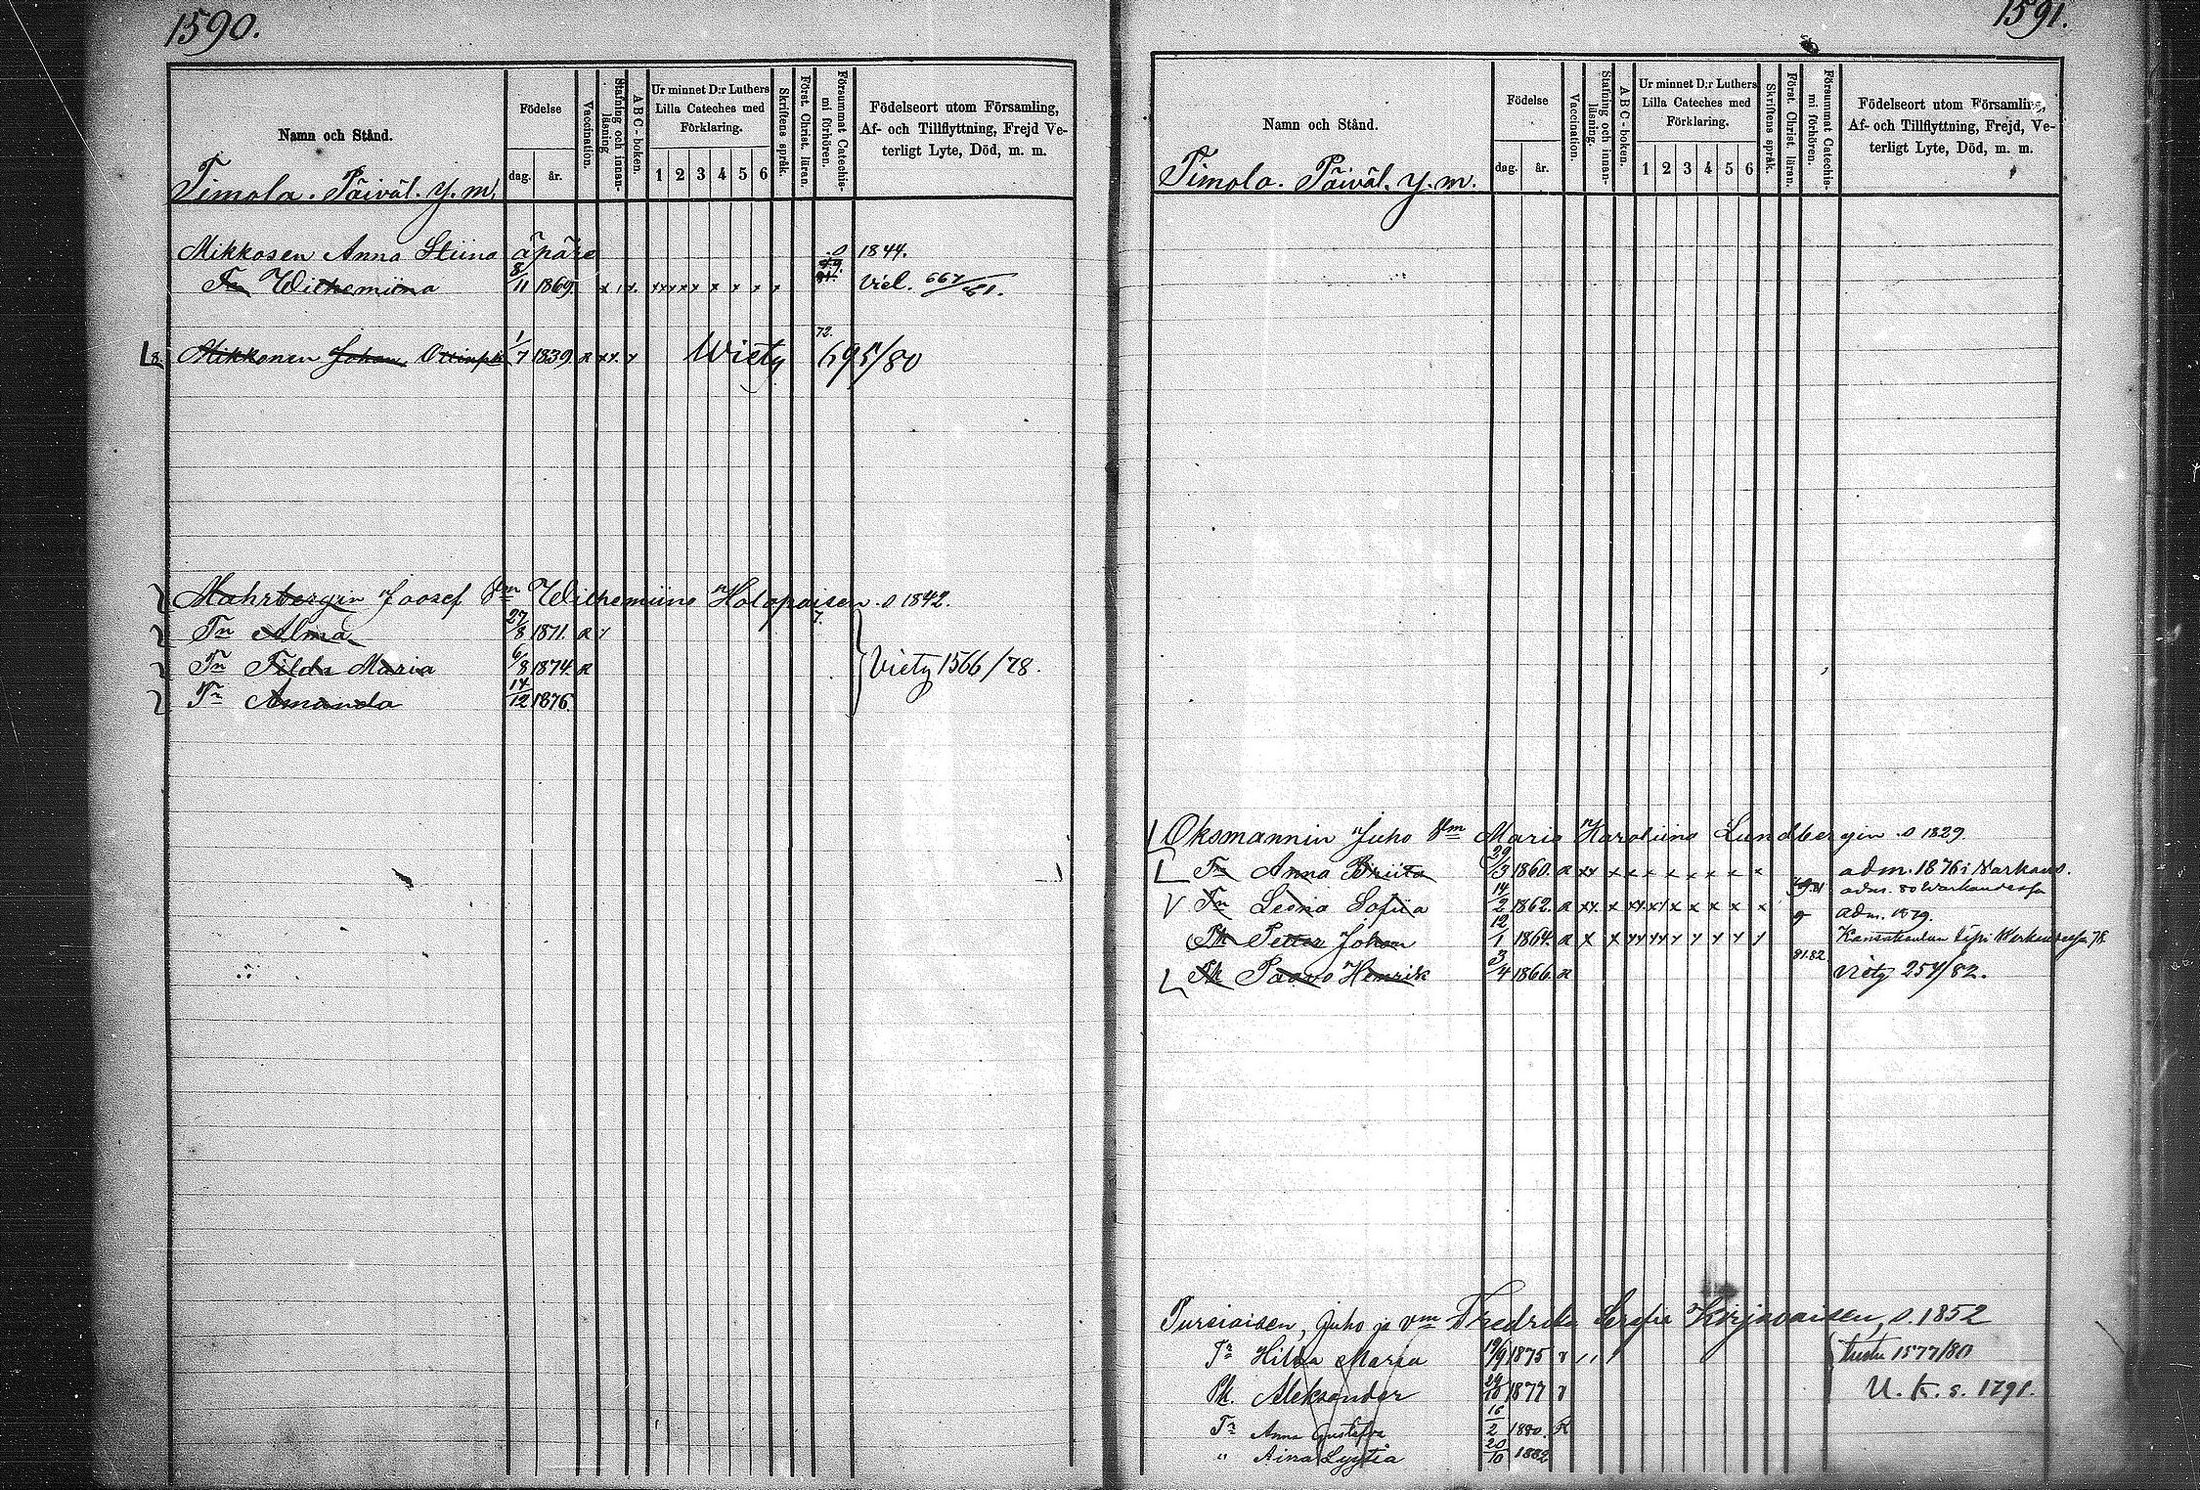 1590.
Namn och Stånd.
Födelse
dag. år.
Vaccination.
Stafning och innan-
läsning
A B C - boken.
Ur minnet D:r Luthers
Lilla Cateches med
Förklaring.
1 2 3 4 5 6
Skriftens språk.
Först. Christ. läran.
Försummat Catechis-
mi förhören.
Födelseort utom Församling,
Af- och Tillflyttning, Frejd Ve-
terligt Lyte, Död, m. m.
Timola. Päiväl. y. m.
Mikkosen Anna Stiina äpäre s 1844.
Tn Wilhemiina 8/11 1869. viel. 667/81.
Mikkonen Johan 1/7 1839. R Wiety 695/80
72.
Mahrbergin Joosef Vm Wilhemiina Holopaisen s 1842.
Tn Alma 27/8 1871. R
Tn Tilda Maria 6/8 1874. R Viety 1566/78.
Tr Amanda 14/12 1876.
1591.
Namn och Stånd.
Födelse
dag. år.
Vaccination.
Stafning och innan-
läsning.
A B C - boken.
Ur minnet D:r Luthers
Lilla Cateches med
Förklaring.
1 2 3 4 5 6
Skriftens språk.
Först. Christ. läran.
Försummat Catechis-
mi förhören.
Födelseort utom Församling,
Af- och Tillflyttning, Frejd, Ve-
terligt Lyte, Död, m. m.
Timola. Päiväl. y. m.
Oksmannin Juho Vm Maria Karoliina Lundbergin s 1829.
Tn Anna Briita 29/3 1860. R adm. 1876 i Warkaus.
adm. 80 Warkaudessa
Tn Leena Sofiia 14/2 1862. R adm. 1879.
Pk Petter Johan 12/1 1864. R
Pk Paavo Henrik 3/4 1866. R 81.82 viety 254/82.
Pursiaisen, Juho ja vm Fredrika Sofia Kirjavaisen, s. 1852
Tr Hilda Maria 19/9 1875
1577/80
Pk. Aleksander 29/10 1877 U. k. s. 1791.
Tr Anna Gustafva 16/2 1880. R
" Aina Lyytia 20/10 1882